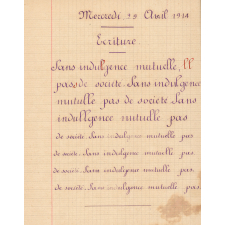 Mercredi 29 Avril 1914
Ecriture
Sans indulgence mutuelle, ll
pas de société. Sans indulgence
mutulle pas de société Sans
indullgence mutuelle pas
de société. Sans indulgence mutuelle pas
de société. Sans indulgence mutuelle pas
de société. Sans indulgence mutuelle pas
de société. Sans indulgence mutuelle pas